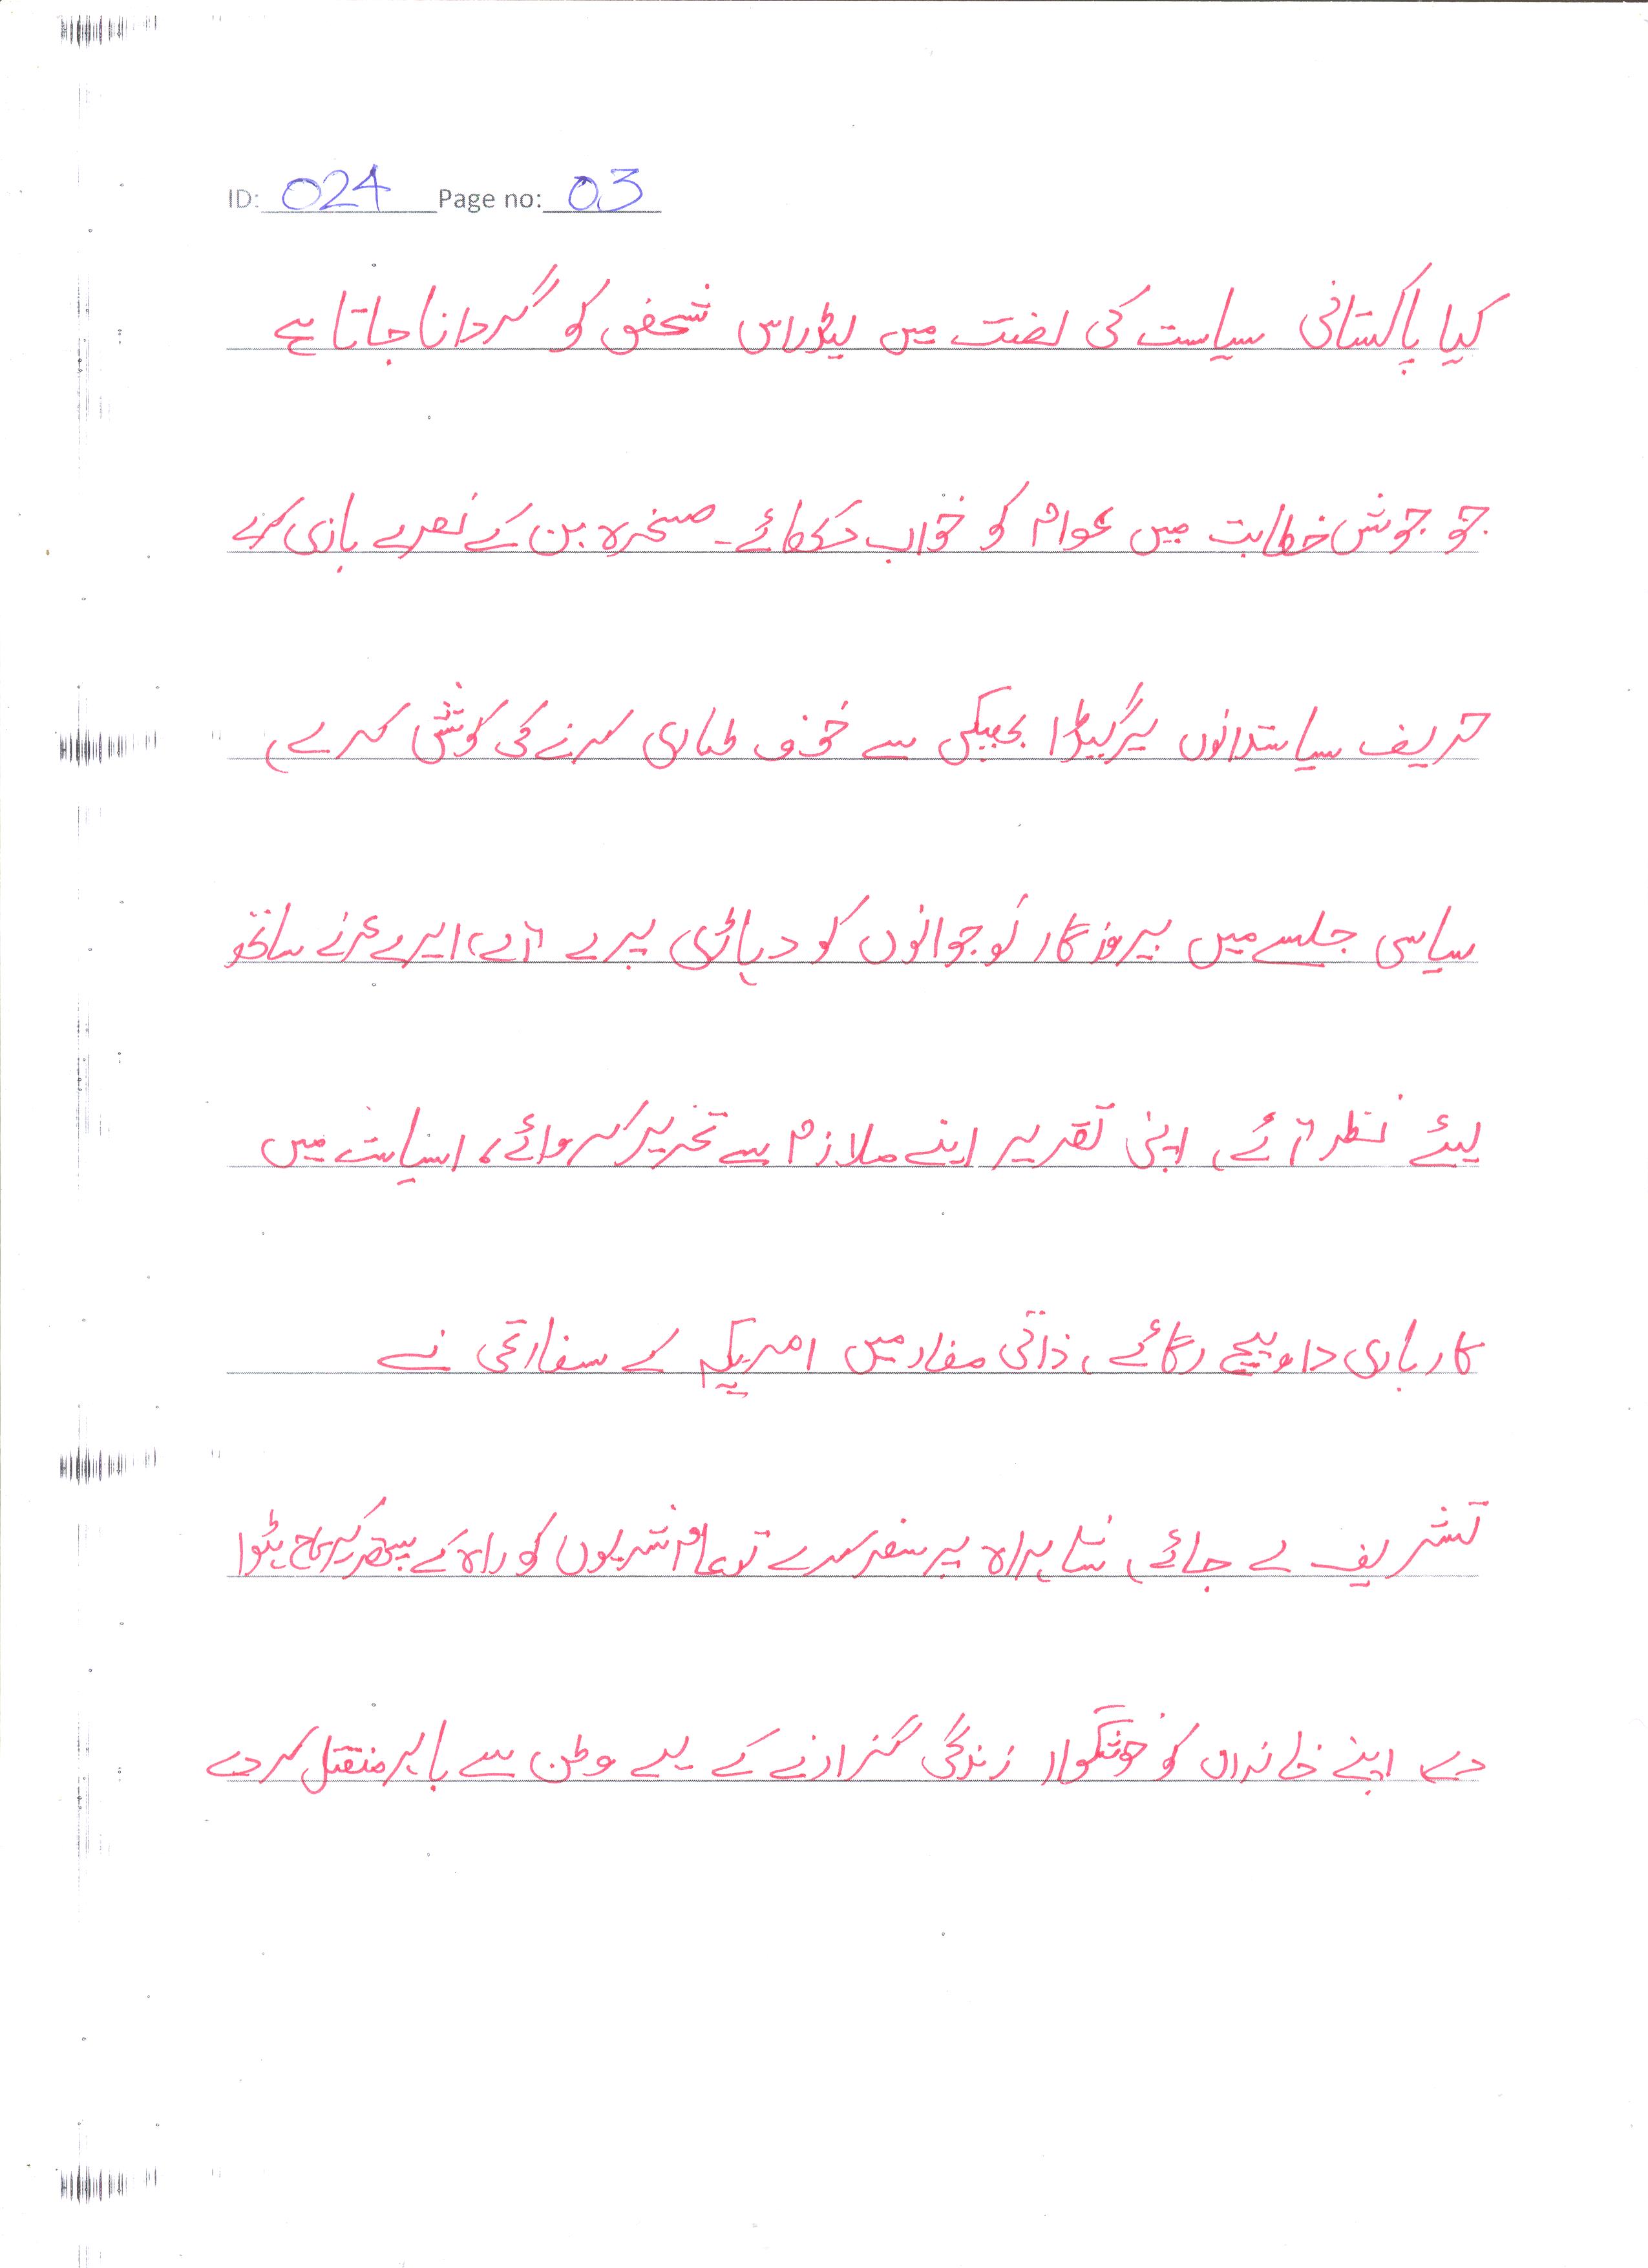 ID: 024 Page no: 03
کیا پاکستانی سیاست کی لغت میں لیڈر اس شخص کو گردانا جاتا ہے
جو جوش خطابت میں عوام کو خواب دکھائے۔ مسخرہ بن کے نعرے بازی کرے
حریف سیاستدانوں پر گیڈر بھبکی سے خوف طاری کرنے کی کوشش کرے،
سیاسی جلسے میں بیروزگار نوجوانوں کو دہاڑی پر لے آئے، ایرے غیرے ساتھ
لیئے نظر آئے، اپنی تقریر اپنے ملازم سے تحریر کروائے، سیاست میں
کاروباری داو پیچ لگائے، ذاتی مفاد میں امریکہ کے سفارتی نے
تشریف لے جائے، شاہراہ پر سفر کرے تو عام شہریوں کو راہ کے پتھر کی طرح ہٹوا
دے، اپنے خاندان کو خوشگوار زندگی گزارنے کے لیے وطن سے باہر منتقل کر دے